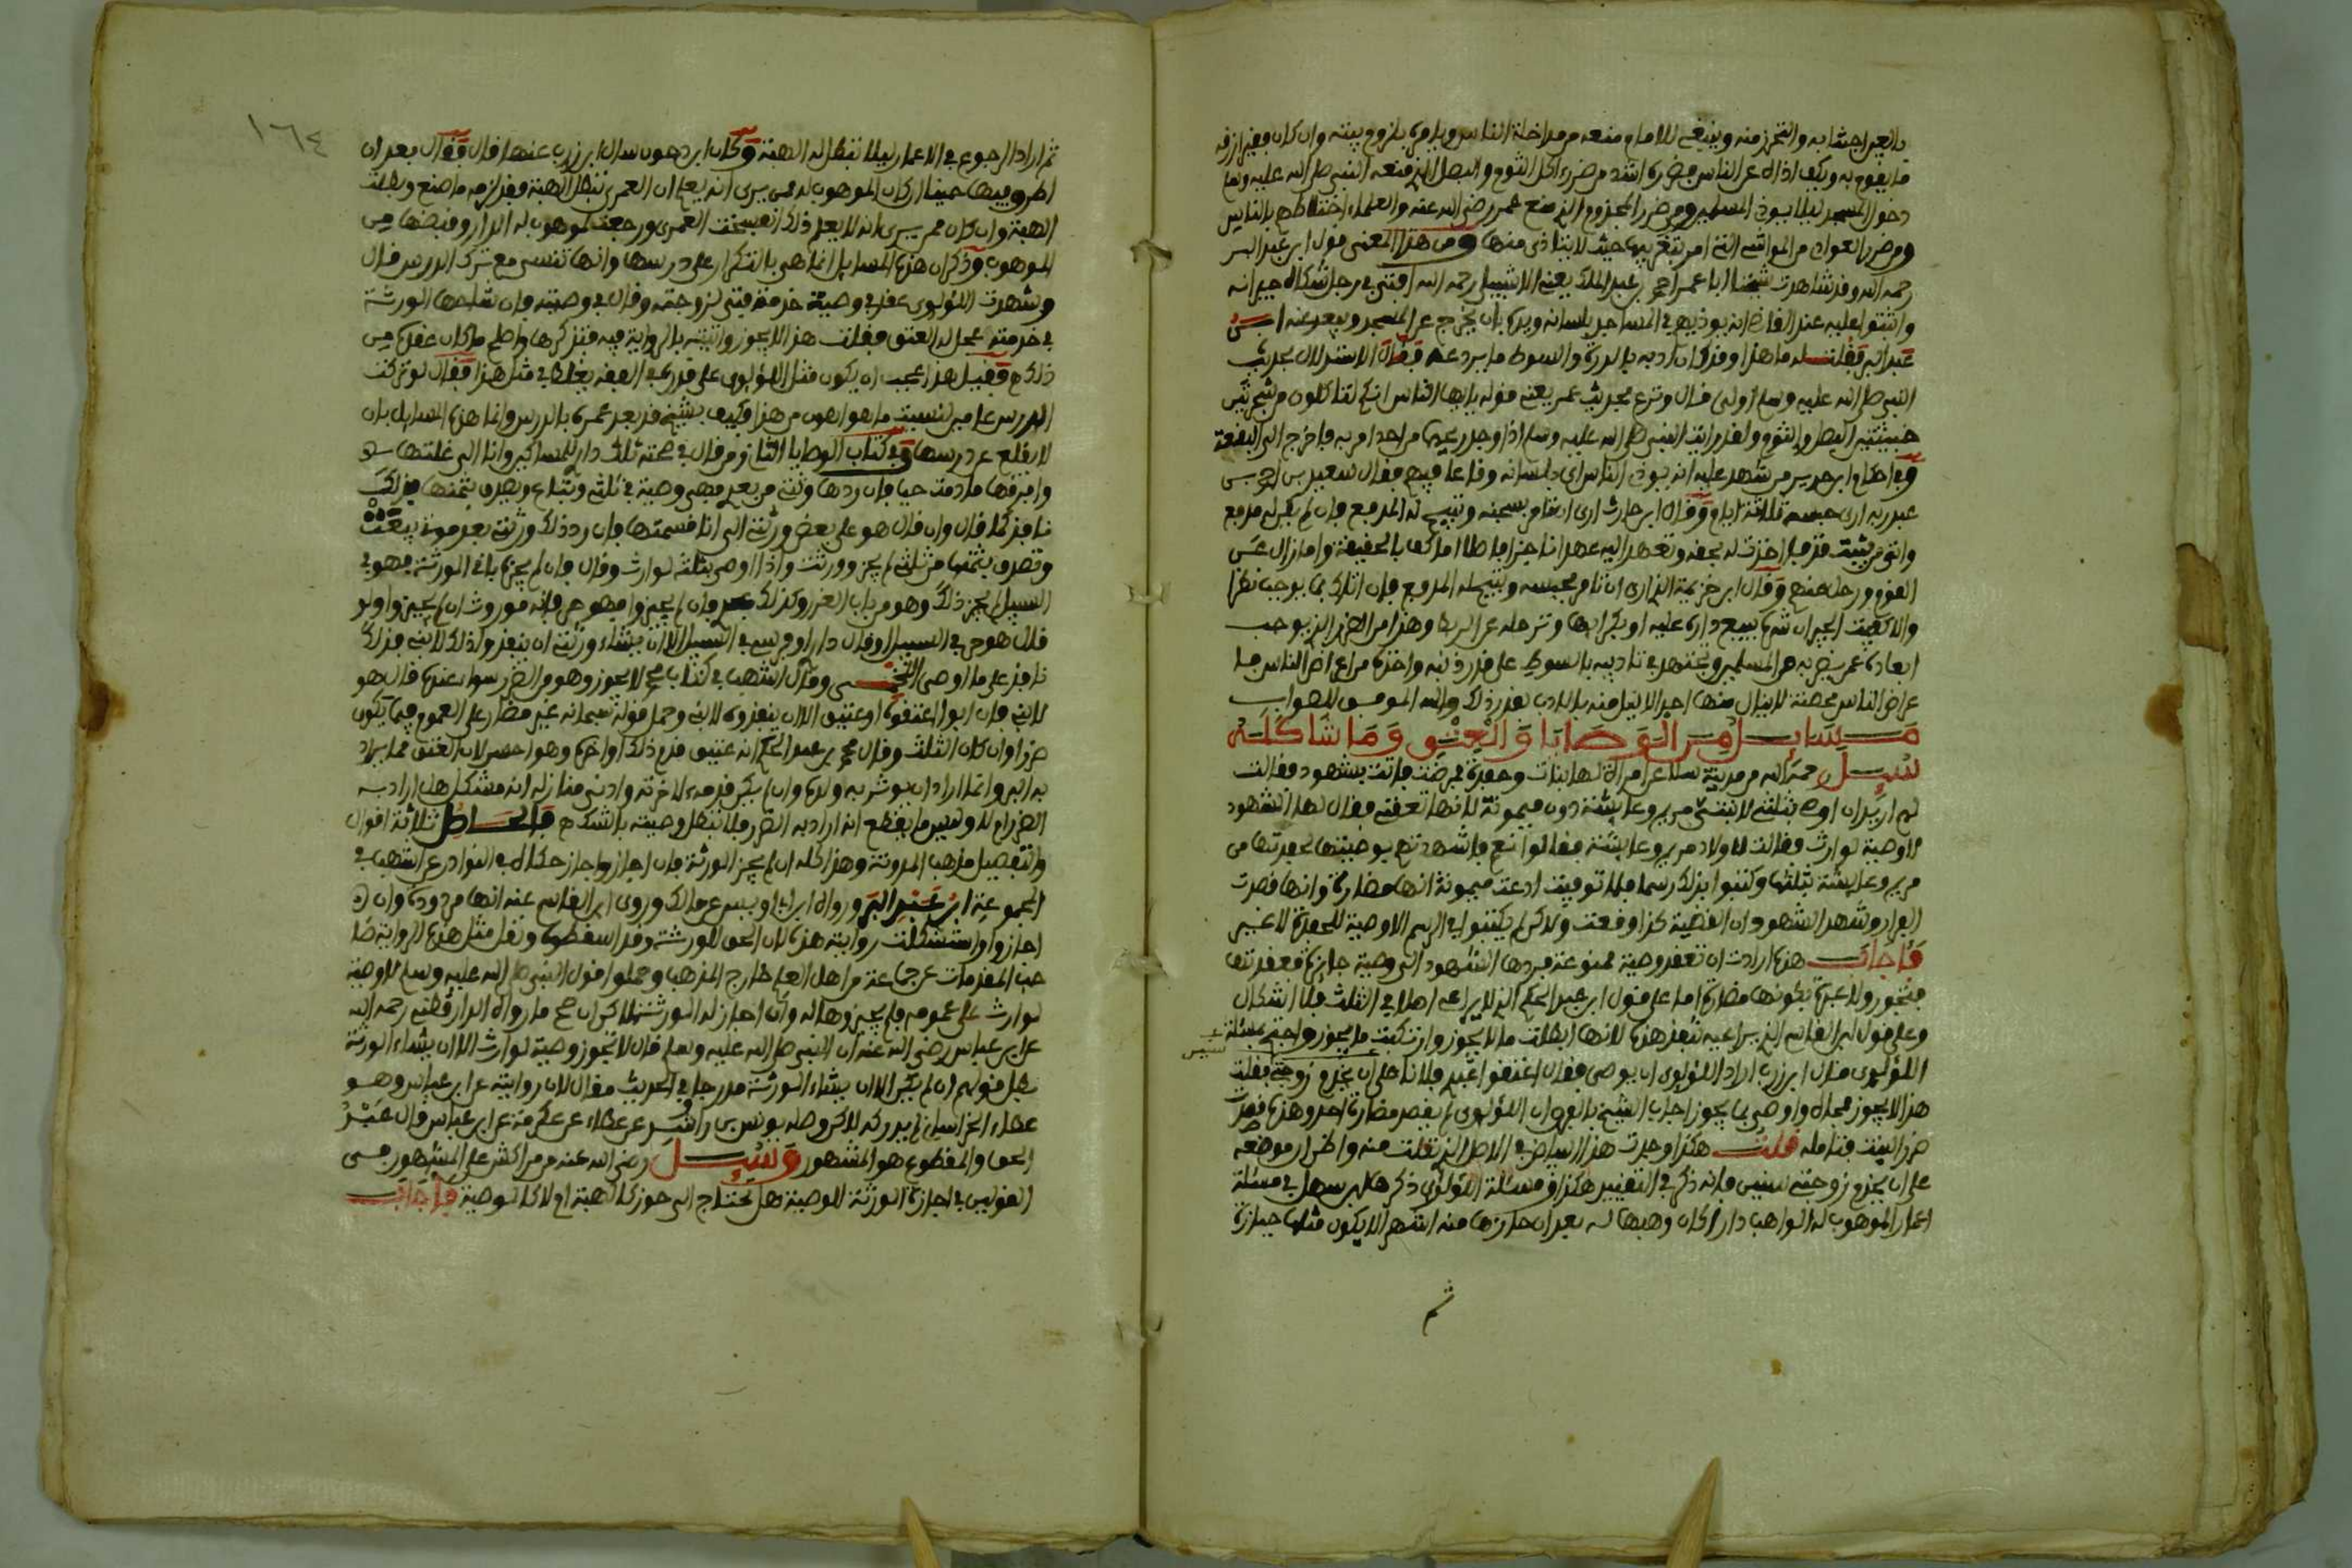 بالعين اجتنابه والتحرز منه وينبغي للامام منعه من مداخلة الناس ويامره بلزوم بيته وان كان فقيرا رزقه
ما يقوم به ويكف اذاه عن الناس فضرره اشد من ضرر اكل الثوم والبصل الذي منعه النبي صلى الله عليه وسلم
دخول المسجد ليلا يوذي المسلمين ومن ضرر المجذوم الذي منع عمر رضي الله عنه والعلماء اختلاطهم بالناس
ومن ضرر العوادي من المواشي التي امر بتغريبها حيث لا يتاذى منها ومن هذا المعنى قول ابن عبد البر
رحمه الله وقد شاهدت شيخنا ابا عمر احمد بن عبد الملك يعني الاشبيلي رحمه الله افتى في رجل شكاه جيرانه
واثبتوا عليه عند القاضي انه يوذيهم في المساجد بلسانه ويده بان يخرج عن المسجد ويبعد عنه ابن
عبد البر فقلت له ما هذا وقد كان ادبه بالدرة والسوط ما يردعه فقال الاستدلال بحديث
النبي صلى الله عليه وسلم اولى قال ونزع بحديث عمر يعني قوله يا ايها الناس انكم تاكلون من شجرتين
خبيثتين البصل والثوم ولقد رايت النبي صلى الله عليه وسلم اذا وجد ريحها من احد امر به فاخرج الى البقعة
وفي احكام ابن حدير من شهد عليه انه يوذي الناس اي بلسانه وقاعا فيهم فقال سعيد بن احمد بن
عبد ربه ارى حبسه ثلاثة ايام وقال ابن حارث ارى ان تامر بسجنه وتبيح له المدفع فان لم يكن له مدفع
العزم ورحل عنهم وقال ابن خزيمة الذي ارى ان تامر بحبسه وتبيح له المدفع فان اتاك بما يوجب نظرا
والا كفيت الجيران شره ببيع داره عليه او بكرائها وترحله عن الربط وهذا من الضرر الذي يوجب
ابعاده عمن يضر به من المسلمين ويجتهد في تاديبه بالسوط على قدر ذنبه واخذه من اعراض الناس فما
عراض الناس محصنة لا ينال منها احد الا نيل منه بالادب بقدر ذلك والله الموفق للصواب
مسايل من الوصايا والعتق وما شاكله
سئل رحمه الله من مدينة سلا عن امراة لها بنات وحفدة مرضت فاتت بشهود فقالت
لهم اريد ان اوصي بثلثي لابنتي مريم وعايشة دون ميمونة لانها تعقني فقال لها الشهود
لا وصية لوارث فقالت لاولاد مريم وعايشة فقالوا نعم فاشهدتهم بوصيتها لحفدتها من
مريم وعايشة بثلثها وكتبوا بذلك رسما فلما توفيت ادعت ميمونة انها مضارة وانها قصدت
الفرار وشهد الشهود ان القضية كذا وقعت ولاكن لم يكتبوا في الرسم الا وصية للحفدة لا غير
فاجاب هذه ارادت ان تعقد وصية ممنوعة فردها الشهود الى وصية جايزة فعقدتها
فتجوز ولا عبرة بكونها مضارة اما على قول ابن عبد الحكم الذي لا يراعيه اصلا في الثلث فلا اشكال
وعلى قول ابن القاسم الذي يراعيه تنفذ هذه لانها ابطلت ما لا يجوز وارتكبت ما يجوز واحتج بمسئلة
اللؤلؤي قال ابن زرب اراد اللؤلؤي ان يوصي فقال اعتقوا عبدي فلانا على ان يخدم زوجتي فقلت
هذا لا يجوز فحاله واوصى بما يجوز اجاب الشيخ بالفرق ان اللؤلؤي لم يقصد مضارة احد وهذه قصدت
ضرر البنت فتامله قلت هكذا وجدت هذا البياض في الاصل الذي نقلت منه واظن ان موضعه
على ان يخدم زوجتي سنين فانه ذكره في التقييد هكذا ومسئلة اللؤلؤي ذكرها ابن سهل في مسئلة
اعمار الموهوب له الواهب دارا كان وهبها له بعد ان حازها منه اشهرا لا يكون مثلها حيازة
ثم
١٦٤
ثم اراد الرجوع في الاعمار ليلا تبطل له الهبة وكان ابن دحون سال ابن زرب عنها قال فقال بعد ان
اطرق فيها حينا ان كان الموهوب له ممن يرى انه يعلم ان العمرى تبطل الهبة فقد لزمه ما صنع وبطلت
الهبة وان كان ممن يرى انه لا يعلم ذلك انفسخت العمرى ورجعت للموهوب له الدار وقبضها من
الموهوب وذكر ان هذه المسايل انما هي بالتكرار على درسها وانها تنسى مع ترك الدرس قال
وشهدت اللؤلؤي عقد في وصية خدمة فتى لزوجته وقال في وصيته فان شاحها الورثة
في خدمته عجل له العتق فقلت هذا لا يجوز واتيته بالرواية فيه فتذكرها واصلح ما كان عقده من
ذلك فقيل هذا عجب ان يكون مثل اللؤلؤي على قدره في الفقه يغلط في مثل هذا فقال لو تركت
الدرس عامين لنسيت ما هو اهون من هذا وكيف بشيخ قد بعد عمره بالدرس وانما هذه المسايل بان
لا يقلع عن درسها وفي كتاب الوصايا الثاني ومن قال في صحته تلك دار للمساكين وانا الى غلتها
نافذ كما قال وان قال هو على بعض ورثتي الى انا قسمتها فان رد ذلك ورثتي بعد موتي بيعت
وتصدق بثمنها من ثلثي لم يجز وورثت واذا اوصى بثلثه لوارث وقال فان لم يجزه باقي الورثة فهو في
السبيل لم يجز ذلك وهو من باب الضرر وكذلك عبدي فان لم يجيزوا فهو حر فانه موروث ان لم يجيزوا ولو
قال هو حر في السبيل او قال داري او فرسي في السبيل الا ان يشاء ورثتي ان ينفذوا ذلك لابني فذلك
نافذ على ما اوصى اللخمي وقال اشهب في كتاب محمد لا يجوز وهو من الضرر سواء عنده قال هو
لابني فان ابوا اعتقوه او عتيق الا ان ينفذوه لابني وحمل قوله سبحانه غير مضار على العموم فيما يكون
ضررا وان كان الثلث وقال محمد بن عبد الحكم انه عتيق قدم ذلك او اخره وهو احسن لان العتق مما يراد
به البر وانما اراد ان يوثر به ولده وان لم يكن قدمه لاخرته وادنى منازله انه مشكل هل اراد به
الضرر ام لا وليس ما يقطع انه اراد به الضرر فلا تبطل وصيته بالشك فالحاصل ثلاثة اقوال
والتفصيل مذهب المدونة وهذا كله ان لم يجز الورثة فان اجازوا جاز حكاه في النوادر عن اشهب في
المجموعة ابن عبد البر ورواه ابن ابي اويس عن مالك وروى ابن القاسم عنه انها مردودة وان
اجازوا واستشكلت رواية هذه لان الحق للورثة وقد اسقطوه ونقل مثل هذه الرواية صا
حب المقدمات عن جماعة من اهل العلم خارج المذهب وحملوا قول النبي صلى الله عليه وسلم لا وصية
لوارث على عمومه فلم يجيزوها له وان اجاز له الورثة لاكن ان صح ما رواه الدارقطني رحمه الله
عن ابن عباس رضي الله عنه ان النبي صلى الله عليه وسلم قال لا تجوز وصية لوارث الا ان يشاء الورثة
بطل قولهم ان لم يكن الا ان يشاء الورثة مدرجا في الحديث فقال لان روايته عن ابن عباس وهو
عطاء الخراساني لم يدركه لاكن وصله يونس بن راشد عن عطاء عن عكرمة عن ابن عباس قال عبد
الحق والمقطوع هو المشهور وسئل رضي الله عنه من مراكش على المشهور من
القولين في اجازة الورثة للوصية هل تحتاج الى حوز كالهبة ام لا كالوصية فاجاب